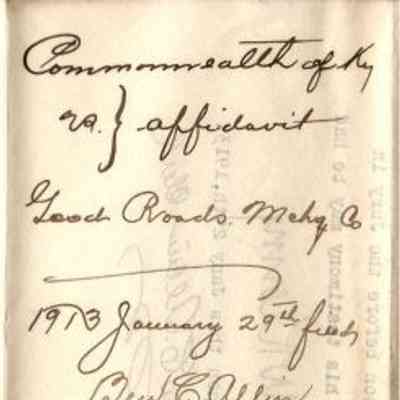 Commonwealth of Ky
vs. } affidavit
Good Roads Mchy Co
1913 January 29th filed
Ben C Allin